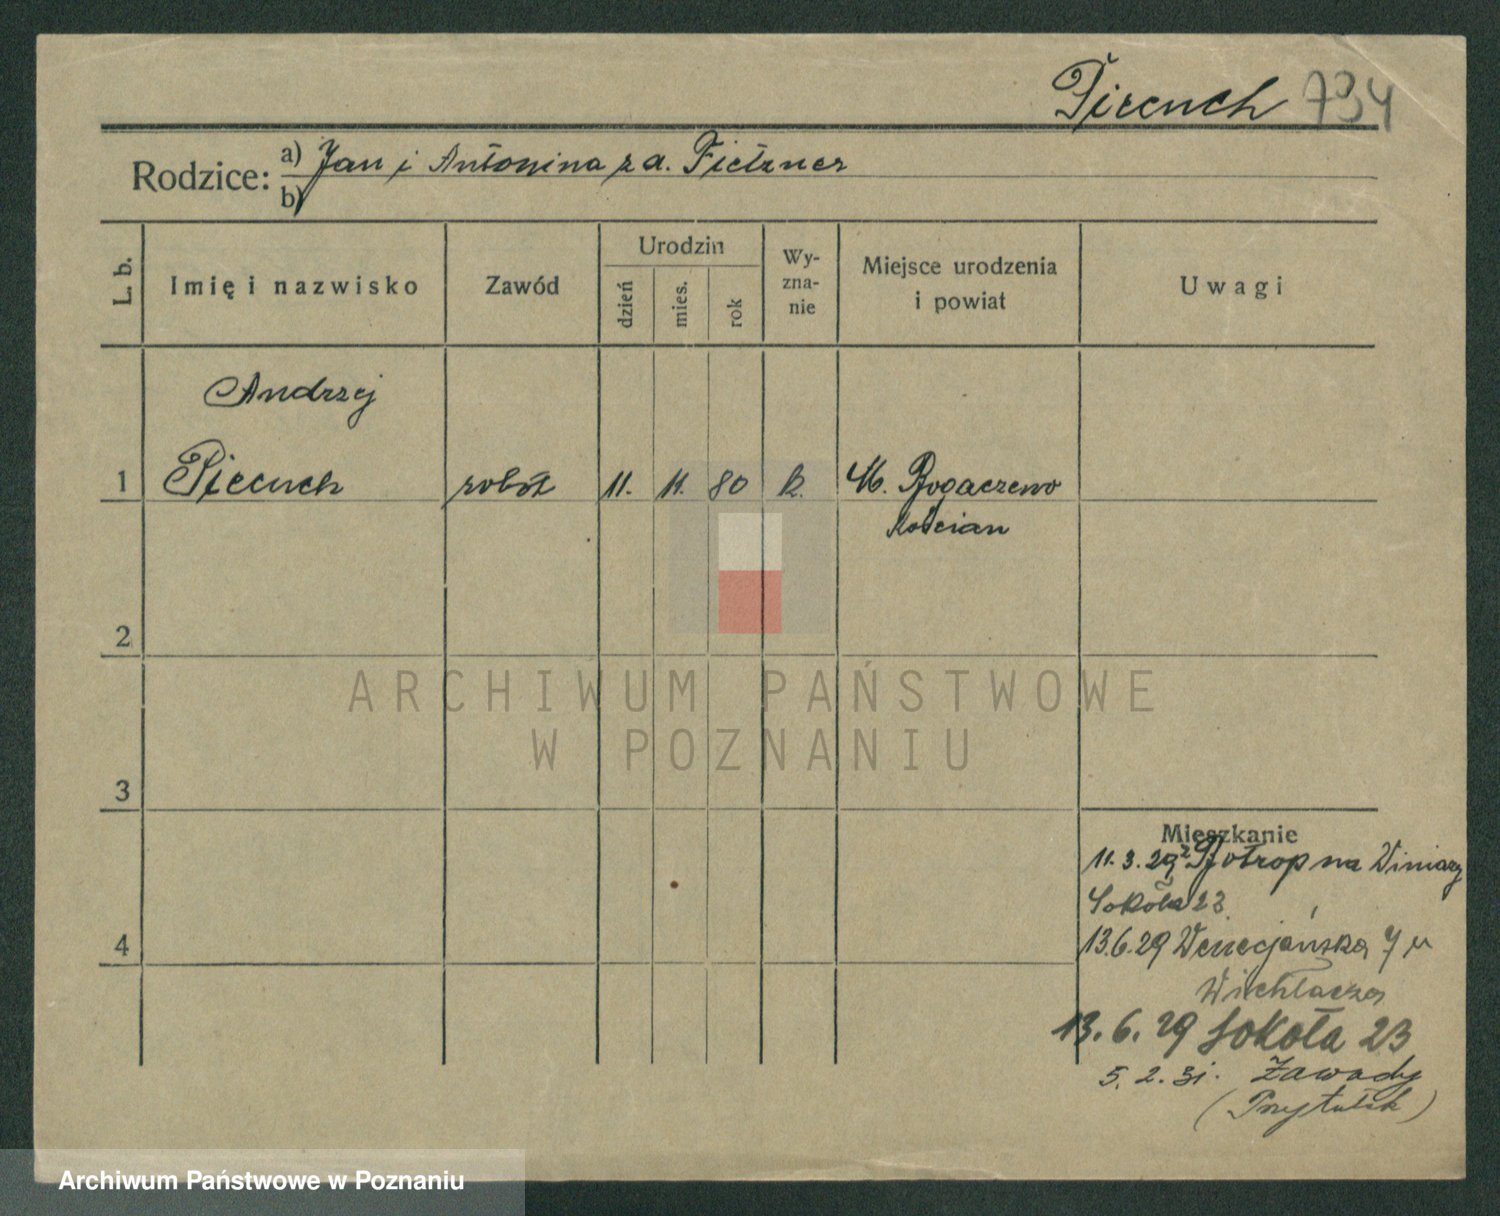 Piecuch 734
Rodzice: a) Jan i Antonina z d. Fietzner
b)
L. b. Imię i nazwisko Zawód Urodzin dzień mies. rok Wyznanie Miejsce urodzenia i powiat Uwagi
Andrzej
1 Piecuch robot 11. 11. 80 k. M.
Kościan
2
ARCHIWUM PAŃSTWOWE
W POZNANIU
3
Mieszkanie
11. 3. 29 z na Winiary
Sokoła 23
4
13.6.29 Wenecjańska 7 u
13. 6. 29 Sokoła 23
5. 2. 31. Zawady
(Przytulisk)
Archiwum Państwowe w Poznaniu